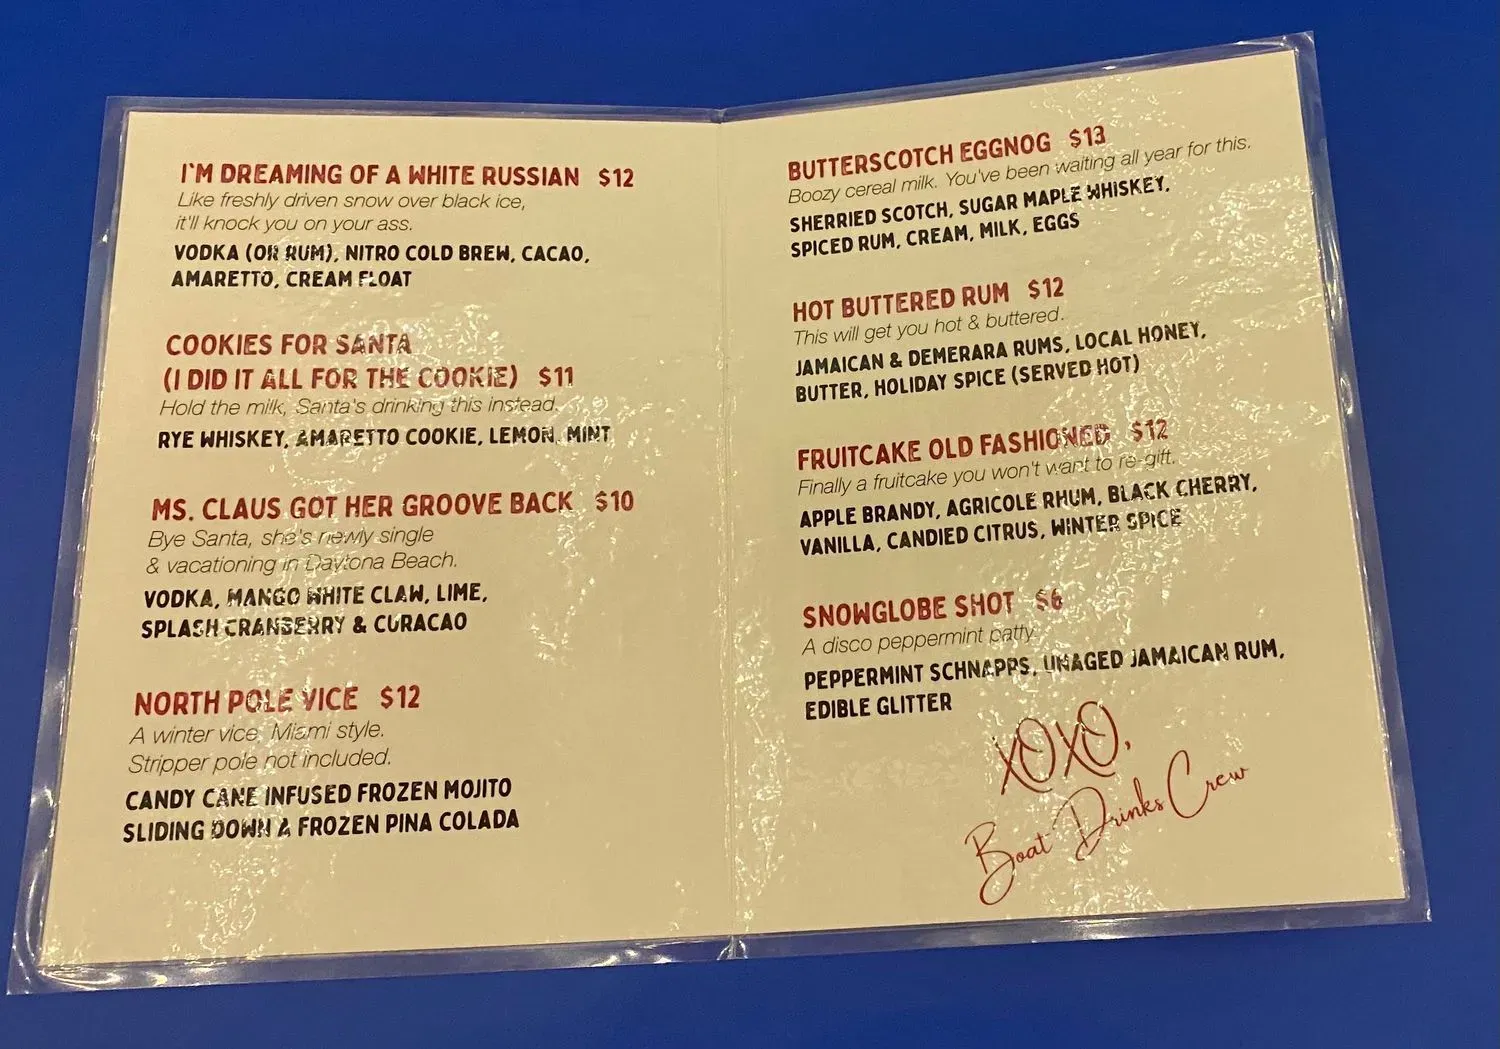 I'M DREAMING OF A WHITE RUSSIAN $12
Like freshly driven snow over black ice,
it'll knock you on your ass.
VODKA (OR RUM), NITRO COLD BREW, CACAO,
AMARETTO, CREAM FLOAT
COOKIES FOR SANTA
(I DID IT ALL FOR THE COOKIE) $11
Hold the milk, Santa's drinking this instead.
RYE WHISKEY, AMARETTO COOKIE, LEMON, MINT
MS. CLAUS GOT HER GROOVE BACK $10
Bye Santa, she's newly single
& vacationing in Daytona Beach.
VODKA, MANGO WHITE CLAW, LIME,
SPLASH CRANBERRY & CURACAO
NORTH POLE VICE $12
A winter vice, Miami style.
Stripper pole not included.
CANDY CANE INFUSED FROZEN MOJITO
SLIDING DOWN A FROZEN PINA COLADA
BUTTERSCOTCH EGGNOG $13
Boozy cereal milk. You've been waiting all year for this.
SHERRIED SCOTCH, SUGAR MAPLE WHISKEY,
SPICED RUM, CREAM, MILK, EGGS
HOT BUTTERED RUM $12
This will get you hot & buttered.
JAMAICAN & DEMERARA RUMS, LOCAL HONEY,
BUTTER, HOLIDAY SPICE (SERVED HOT)
FRUITCAKE OLD FASHIONED $12
Finally a fruitcake you won't want to re-gift.
APPLE BRANDY, AGRICOLE RHUM, BLACK CHERRY,
VANILLA, CANDIED CITRUS, WINTER SPICE
SNOWGLOBE SHOT $6
A disco peppermint patty.
PEPPERMINT SCHNAPPS, UNAGED JAMAICAN RUM,
EDIBLE GLITTER
XOXO,
Boat Drinks Crew